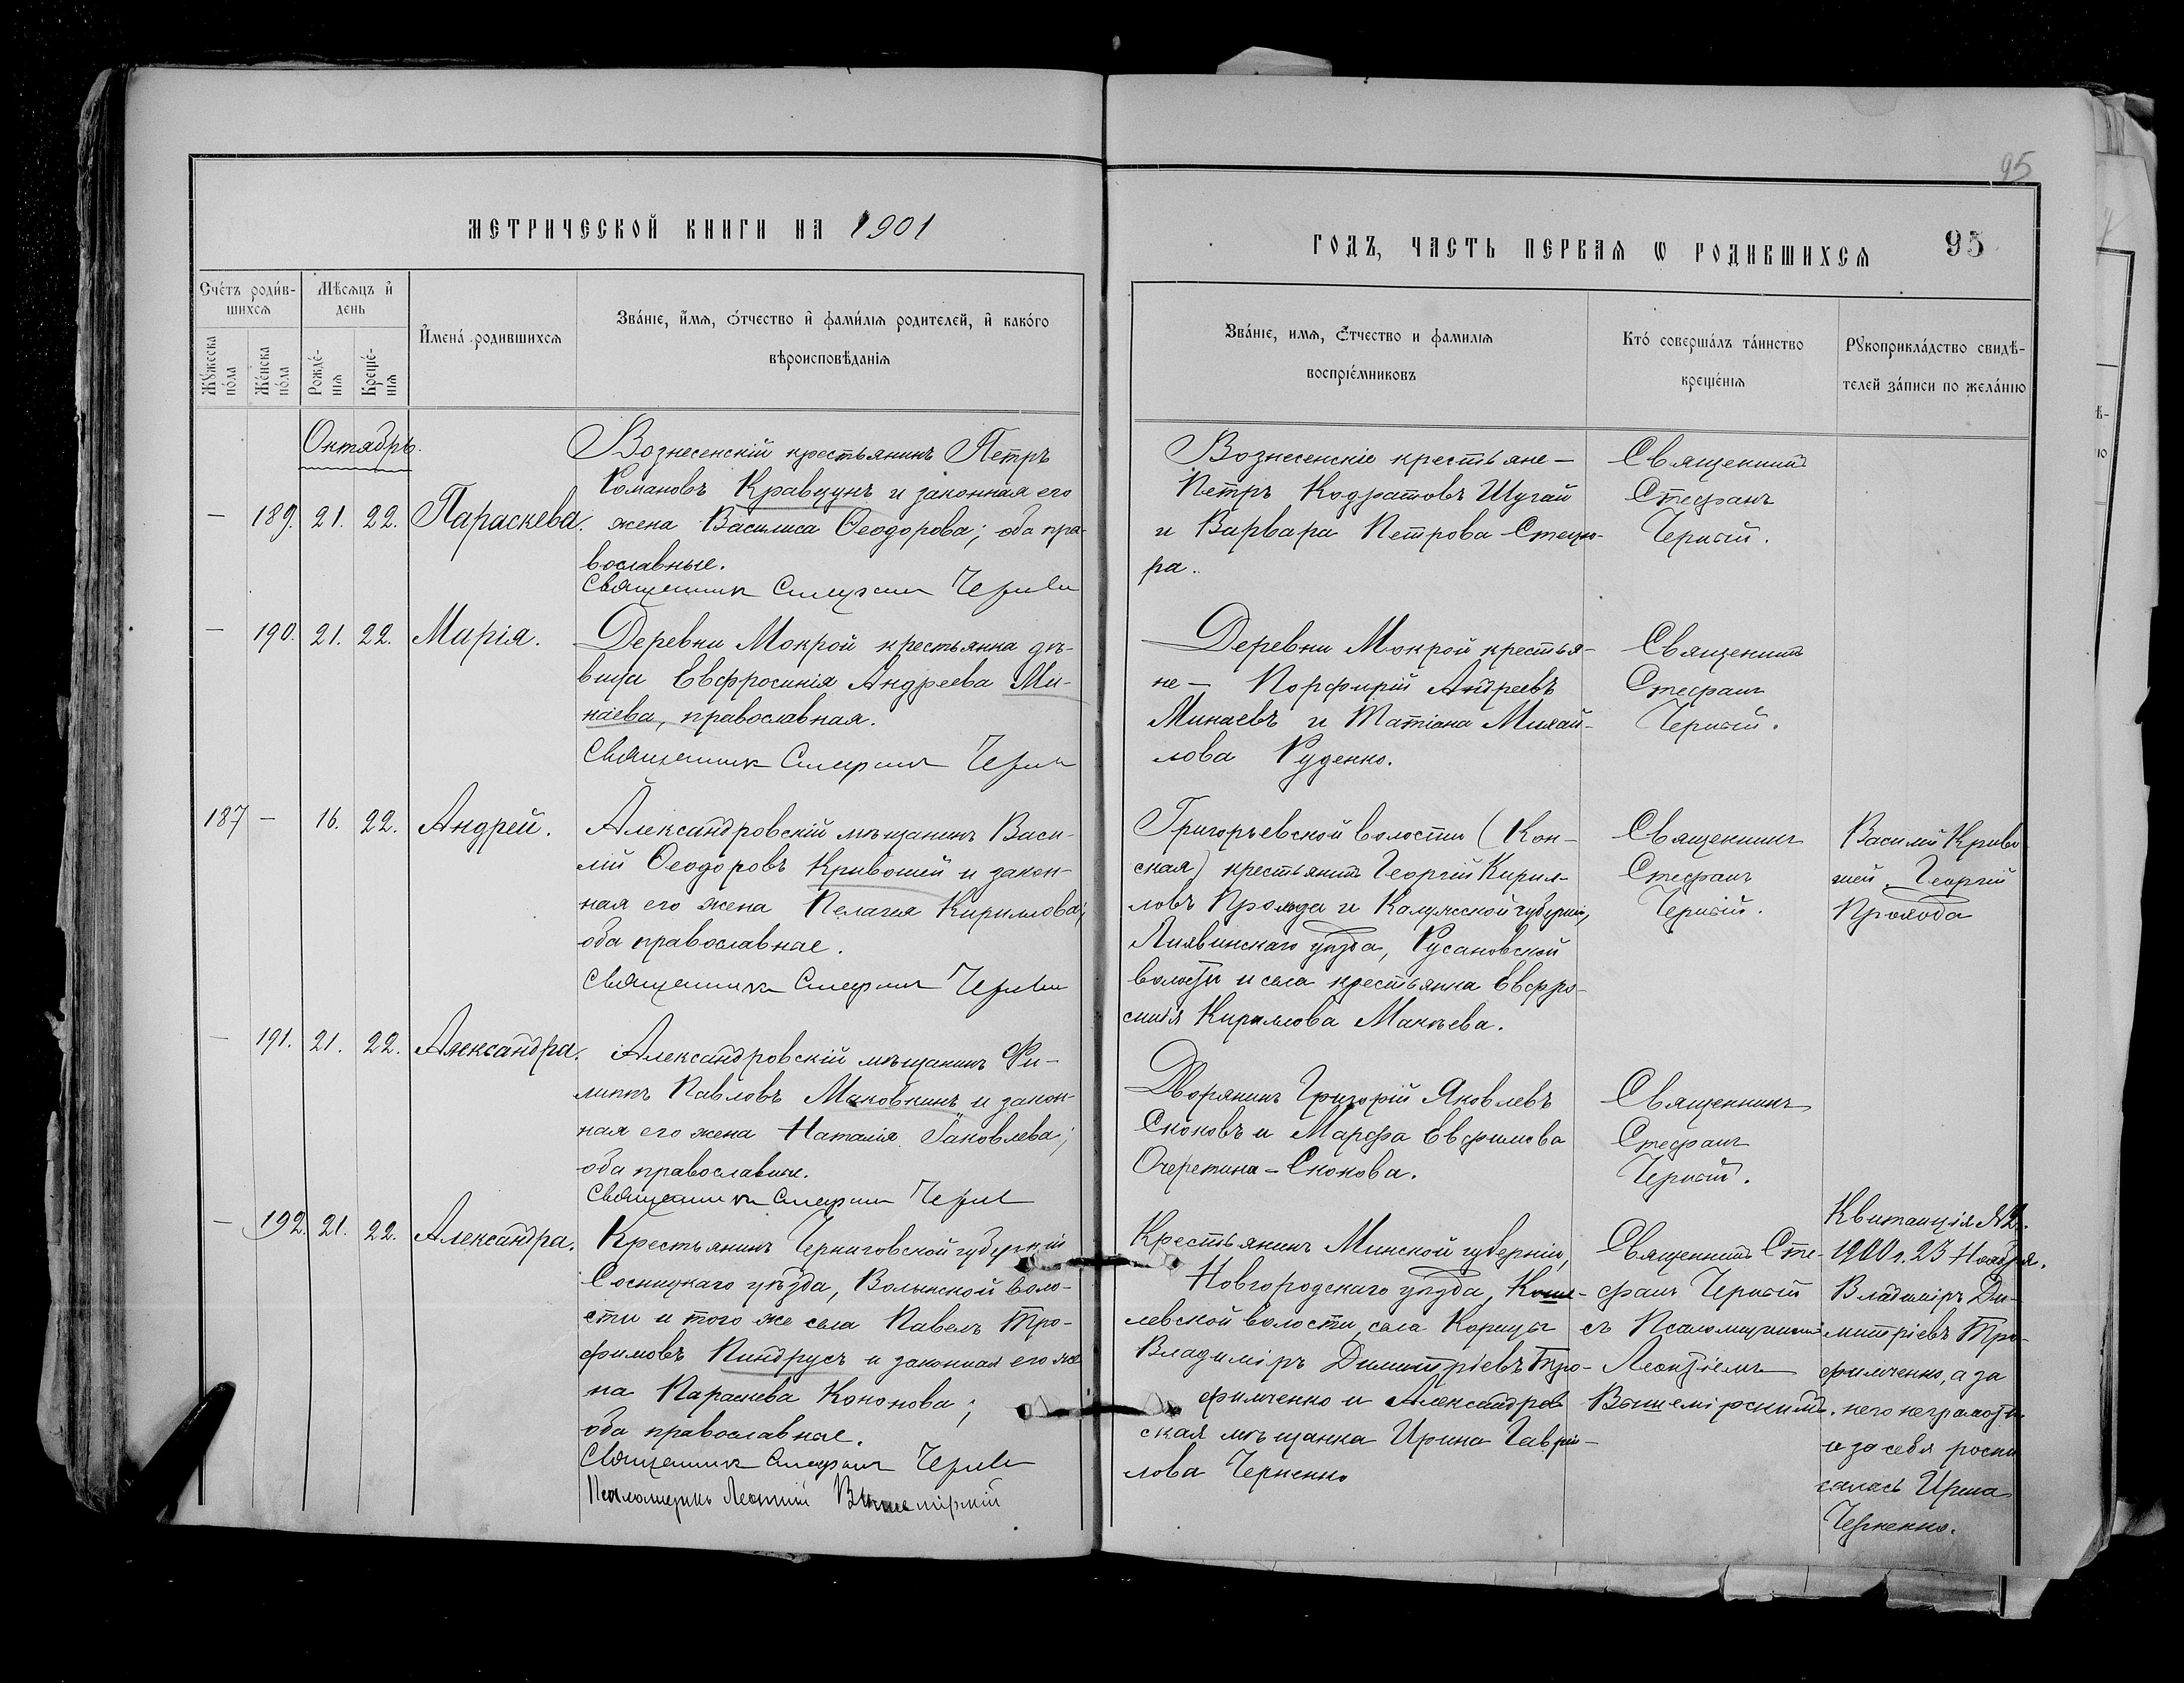 95
МЕТРИЧЕСКОЙ КНИГИ НА 1901
ГОДЪ, ЧАСТЬ ПЕРВАЯ Ѡ РОДИВШИХСЯ
95
Счетъ родив-
шихся
Мѣсяцъ и
день
Имена родившихся
Званіе, имя, отчество и фамилія родителей, и какого
вѣроисповѣданія
Мужеска
пола
Женска
пола
Рожде-
нія
Креще-
нія
Званіе, имя, Отчество и фамилія
воспріемниковъ
Кто совершалъ таинство
крещенія
Рукоприкладство свидѣ-
телей записи по желанію
Октябрь.
— 189. 21. 22. Параскева.
Вознесенскій крестьянинъ Петръ
Романовъ Кравцунъ и законная его
жена Василиса Ѳеодорова; оба пра-
вославные.
Священникъ Стефанъ Черный
Вознесенскіе крестьяне —
Петръ Кодратовъ Шугай
и Варвара Петрова Стецю-
ра.
Священникъ
Стефанъ
Черный.
— 190. 21. 22. Марія.
Деревни Мокрой крестьянка дѣ-
вица Евфросинія Андреева Ми-
наева, православная.
Священникъ Стефанъ Черный
Деревни Мокрой крестья-
не — Порфирій Андреевъ
Минаевъ и Татіана Михай-
лова Руденко.
Священникъ
Стефанъ
Черный.
187 — 16. 22. Андрей.
Александровскій мѣщанинъ Васи-
лій Ѳеодоровъ Кривошей и закон-
ная его жена Пелагея Кириллова;
оба православные.
Священникъ Стефанъ Черный
Григорьевской волости (Кон-
ская) крестьянинъ Георгій Кирил-
ловъ Прохода и Калужской губерніи,
Лихвинскаго уѣзда, Русановской
волости и села крестьянка Евфро-
синія Кириллова Макѣева.
Священникъ
Стефанъ
Черный.
Василій Криво-
шей, Георгій
Прохода
— 191. 21. 22. Александра.
Александровскій мѣщанинъ Фи-
липпъ Павловъ Маковкинъ и закон-
ная его жена Наталія Іаковлева;
оба православные.
Священникъ Стефанъ Черный
Дворянинъ Григорій Яковлевъ
Сноковъ и Марфа Евфимова
Очеретина-Снокова.
Священникъ
Стефанъ
Черный.
— 192. 21. 22. Александра.
Крестьянинъ Черниговской губерніи
Сосницкаго уѣзда, Волынской воло-
сти и того же села Павелъ Тро-
фимовъ Пиндрусъ и законная его же-
на Параскева Кононова;
оба православные.
Священникъ Стефанъ Черный
Псаломщикъ Леонтій Вышемірскій
Крестьянинъ Минской губерніи,
Новгородскаго уѣзда, Коше-
левской волости, села Корицы
Владиміръ Димитріевъ Тро-
фимченко и Александров-
ская мѣщанка Ирина Гаврі-
лова Черненко
Священникъ Сте-
фанъ Черный
съ Псаломщикомъ
Леонтіемъ
Вышемірскимъ.
Квитанція №2.
1900 г. 23 Ноября.
Владиміръ Ди-
митріевъ Тро-
фимченко, а за
него неграмотн.
и за себя роспи
салась Ирина
Черненко.